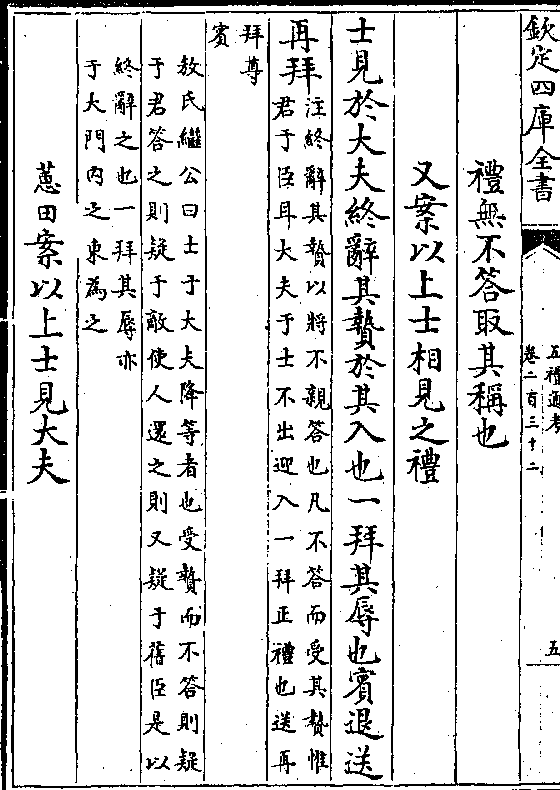 欽定四庫全書
五禮通考
卷二百三十二
五
禮無不答取其稱也
又案以上士相見之禮
士見於大夫終辭其贄於其入也一拜其辱也賓退送
再拜
注終辭其贄以將不親答也凡不答而受其贄惟
君于臣耳大夫于士不出迎入一拜正禮也送再
拜尊
賓
敖氏繼公曰士于大夫降等者也受贄而不答則疑
于君答之則疑于敵使人還之則又疑于舊臣是以
終辭之也一拜其辱亦
于大門内之東為之
蕙田案以上士見大夫